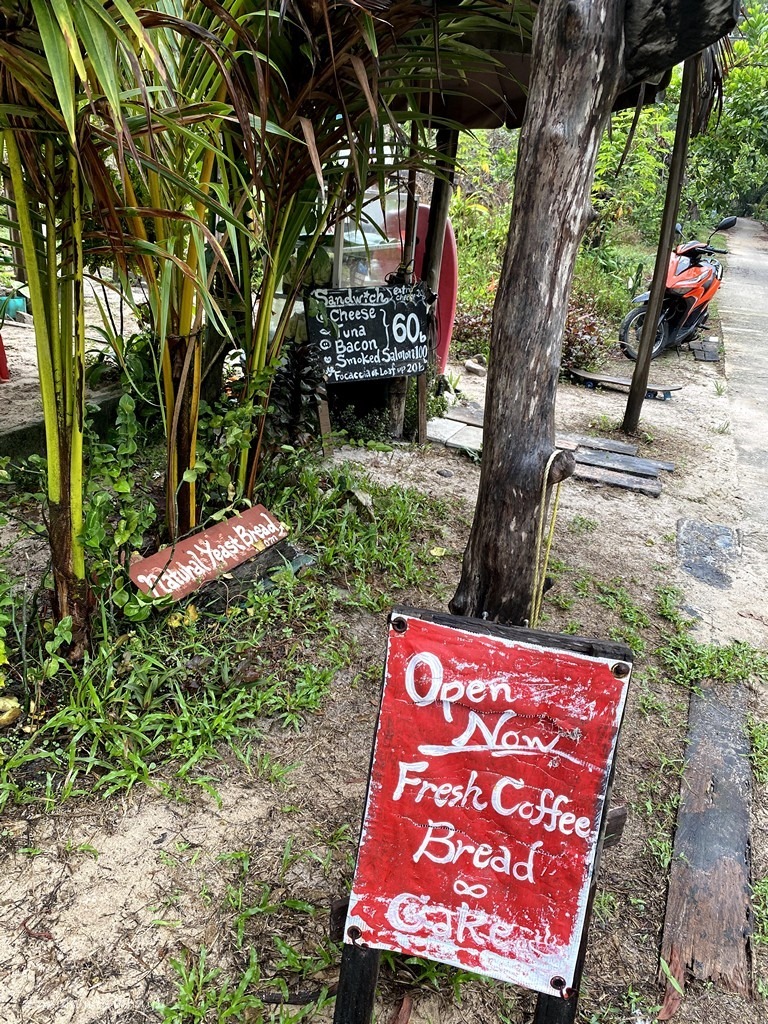 Sandwich
Cheese
Tuna
Bacon
60b
Smoked Salmon 100
Natural Yeast Bread
Open
Now
Fresh Coffee
Bread
∞
Cake